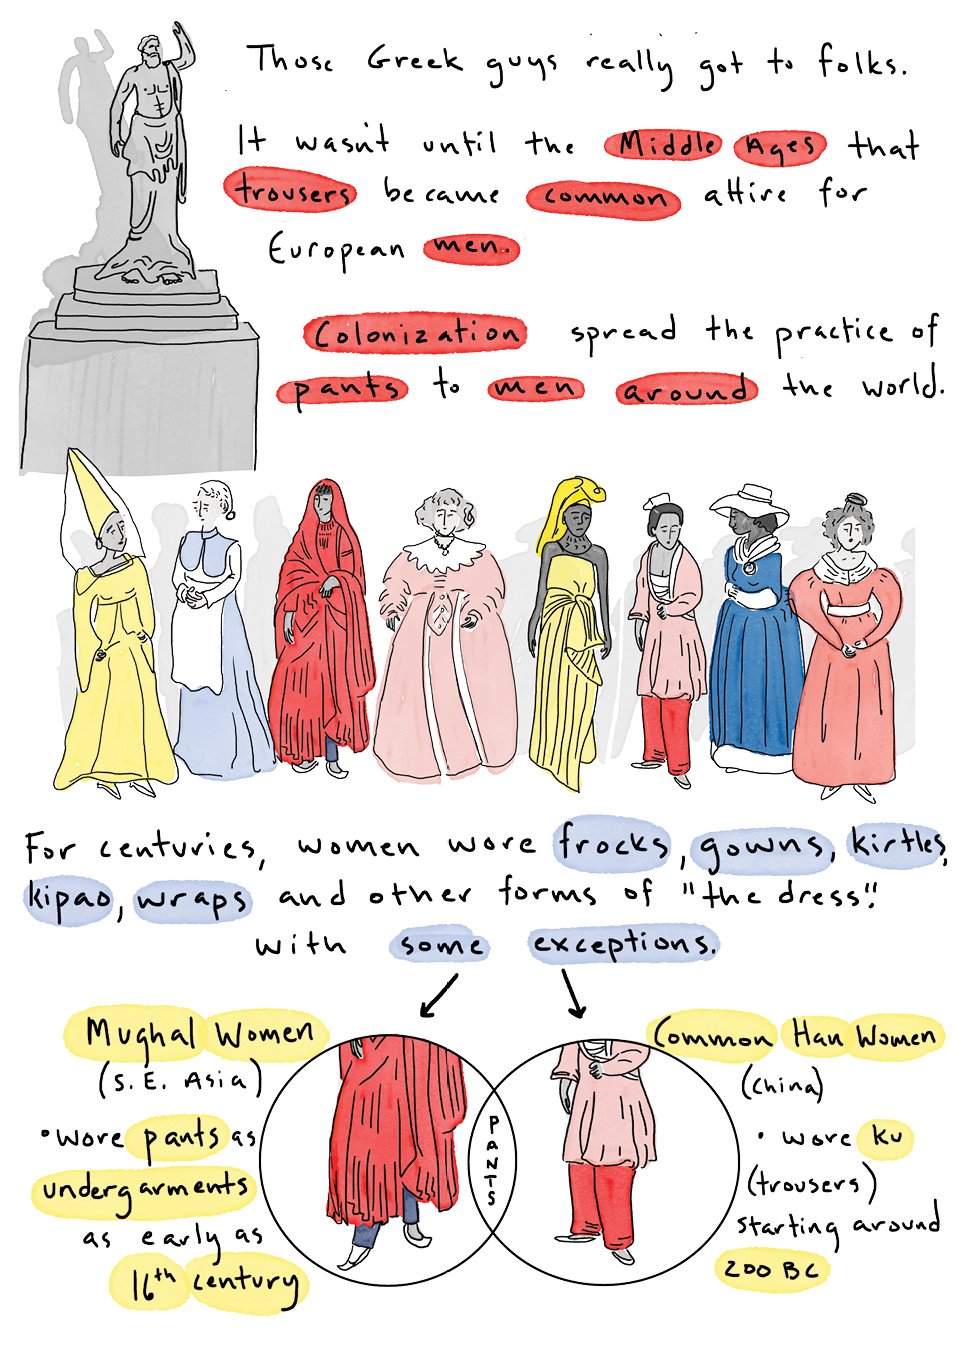 Those Greek guys really got to folks.
It wasn't until the Middle Ages that
trousers became common attire for
European men.
Colonization spread the practice of
pants to men around the world.
For centuries, women wore frocks, gowns, kirtles,
kipao, wraps and other forms of "the dress".
with some exceptions.
Mughal Women
(S.E. Asia)
• wore pants as
undergarments
as early as
16th century
PANTS
Common Han Women
(China)
• wore ku
(trousers)
starting around
200 BC